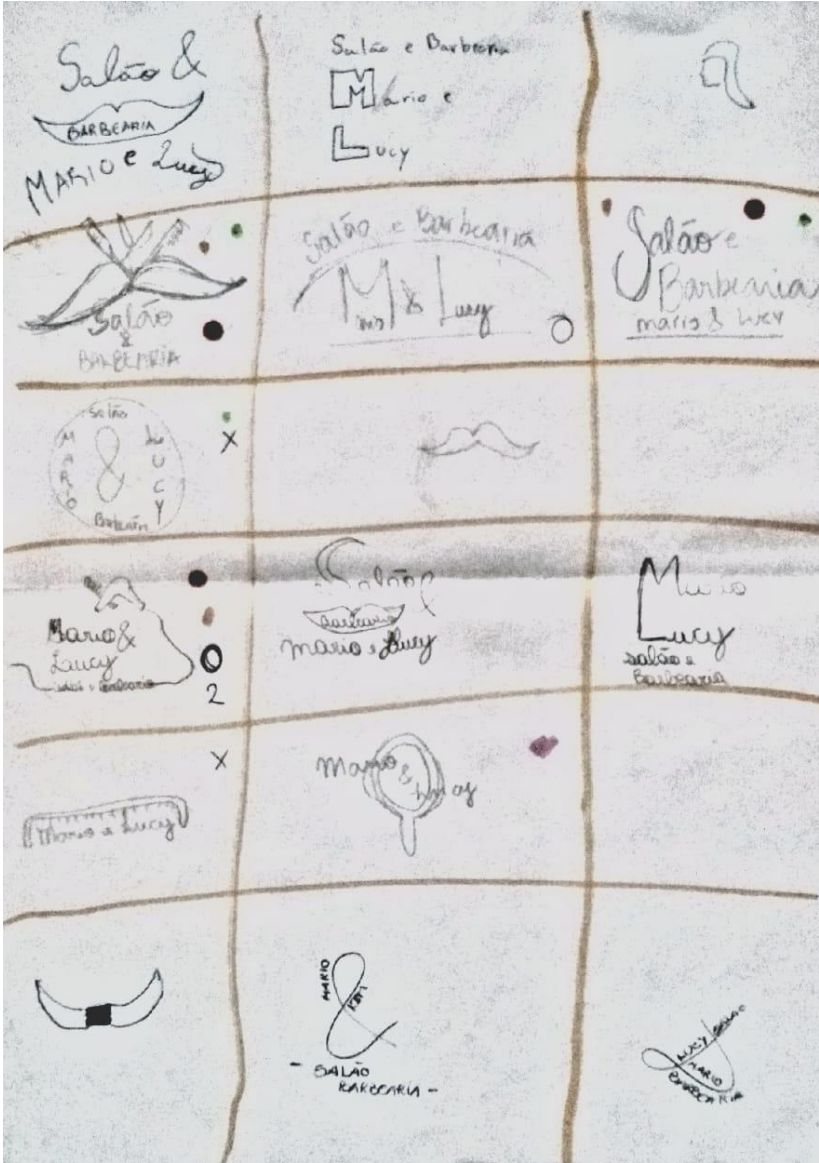 Salão &
BARBEARIA
MARIO e Lucy
Salão e Barbearia
Mario e
Lucy
Salão
&
BARBEARIA
Salão e Barbearia
&
Lucy
Salão e
Barbearia
mario & Lucy
Salão
MARIO
&
LUCY
X
Mario &
Lucy
Salão e Barbearia
2
Salão &
Barbearia
mario e Lucy
Mario
Lucy
salão e
Barbearia
X
Mario e Lucy
Mario & Lucy
MARIO
&
- SALÃO
BARBEARIA -
LUCY
MARIO
BARBEARIA